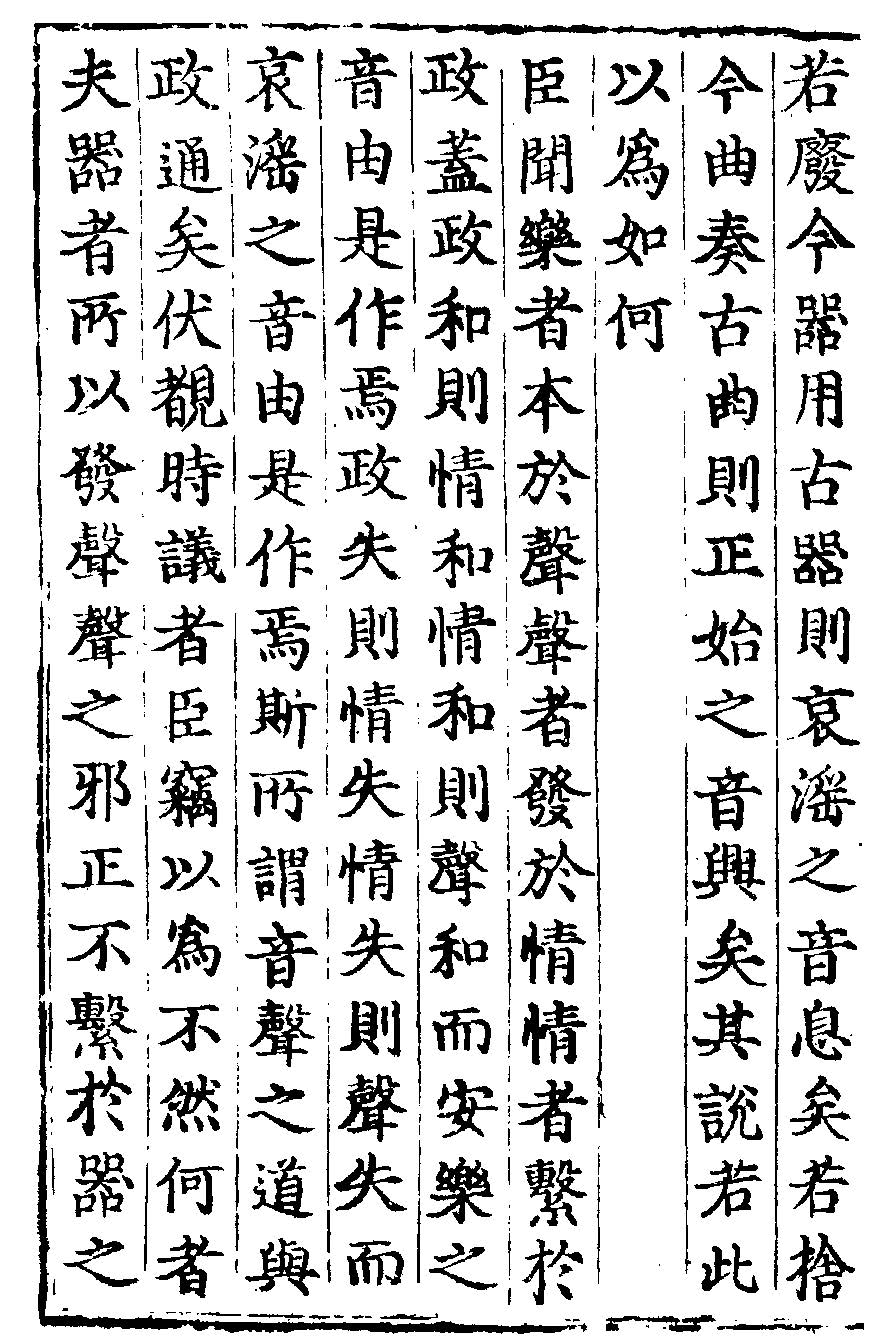 若廢今器用古器則哀滛之音息矣若捨
今曲奏古曲則正始之音興矣其說若此
以爲如何
臣聞樂者本於聲聲者發於情情者繫於
政蓋政和則情和情和則聲和而安樂之
音由是作焉政失則情失情失則聲失而
哀滛之音由是作焉斯所謂音聲之道與
政通矣伏覩時議者臣竊以爲不然何者
夫器者所以發聲聲之邪正不繫於器之